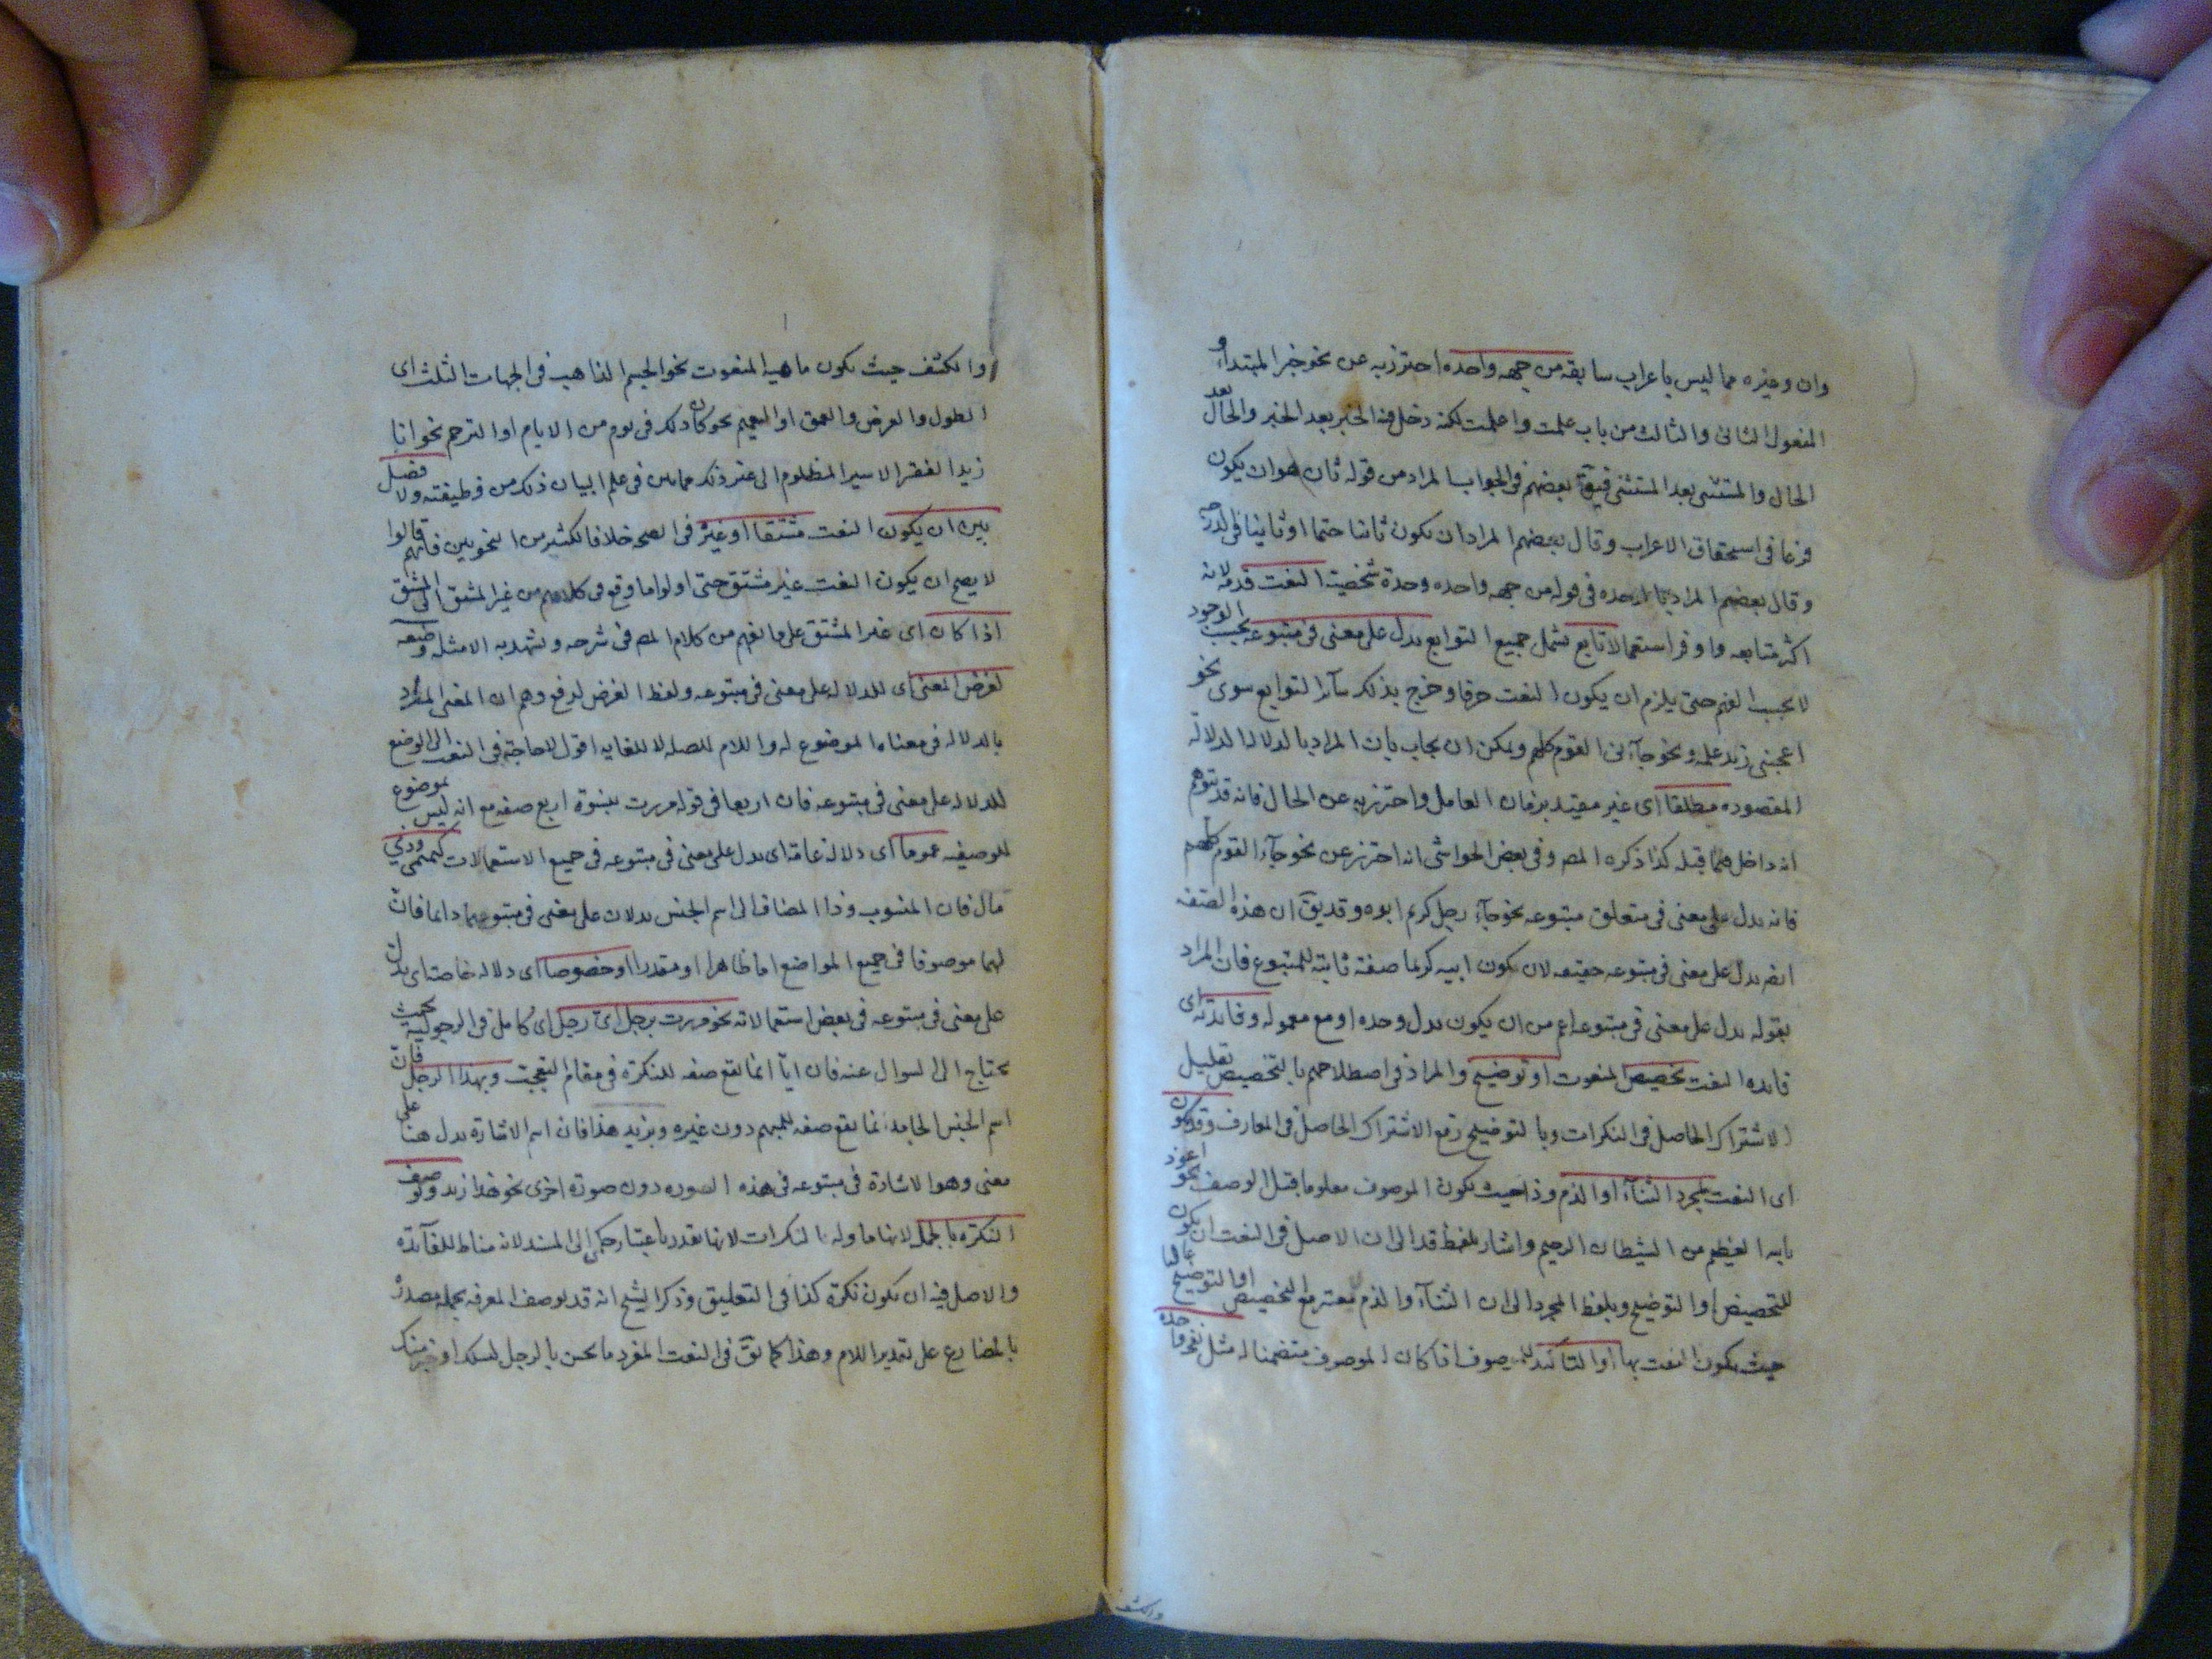 وان وخبره مما ليس باعراب سابقه من جهه واحده احترز به عن نحو خبر المبتداء و
المفعول الثانى والثالث من باب علمت واعلمت لكنه دخل فيه الخبر بعد الخبر والحال بعد
الحال والمستثنى بعد المستثنى فيق بعضهم فى الجواب المراد من قوله ثان هو ان يكون
فرعا فى استحقاق الاعراب وقال بعضهم المراد ان يكون ثانيا حتما او ثانيا فى الدرجه
وقال بعضهم المراد بالوحده فى قوله من جهه واحده وحدة شخصية النعت قدمه لانه
اكثر متابعه واوفر استعمالا تابع يشمل جميع التوابع يدل على معنى فى متبوعه بحسب الوجود
لا بحسب الفهم حتى يلزم ان يكون النعت حرفا وخرج بذلك سآئر التوابع سوى نحو
اعجبنى زيد علمه ونحو جآءنى القوم كلهم ويمكن ان يجاب بان المراد بالدلاله الدلالة
المقصوده مطلقا اى غير مقيد بزمان العامل واحترز به عن الحال فانه قد يتوهم
انه داخل فيما قبله كذا ذكره المص وفى بعض الحواشى انه احترز عن نحو جآء القوم كلهم
فانه يدل على معنى فى متعلق متبوعه نحو جآء رجل كريم ابوه وقد يق ان هذه الصفه
ايضه يدل على معنى فى متبوعه حقيقه لان كون ابيه كريما صفة ثابته للمتبوع فان المراد
بقوله يدل على معنى فى متبوعه اعم من ان يكون يدل وحده او مع معموله وفائدته اى
فايده النعت تخصيص المنعوت او توضيح والمراد فى اصطلاحهم بالتخصيص تقليل
الاشتراك الحاصل فى النكرات وبالتوضيح رفع الاشتراك الحاصل فى المعارف وقد يكون
اى النعت لمجرد الثنآء او الذم وذا حيث يكون الموصوف معلوما قبل الوصف نحو اعوذ
بالله العظيم من الشيطان الرجيم واشار بلفظ قد الى ان الاصل فى النعت ان يكون
للتخصيص او التوضيح وبلفظ المجرد الى ان الثنآء والذم معتبر مع التخصيص او التوضيح غالبا
حيث يكون النعت بها او التاكيد للموصوف اذا كان الموصوف متضمنا له مثل نفخة واحده
والكشف
والكشف حيث يكون ماهية المنعوت نحو الجسم الذاهب فى الجهات الثلث اى
الطول والعرض والعمق او التعميم نحو كان ذلك فى يوم من الايام او الترحم نحو انا
زيد الفقير الاسير المظلوم الى غير ذلك مما بين فى علم البيان ذلك من وظيفته ولا فصل
بين ان يكون النعت مشتقا او غيره فى الصح خلافا لكثير من النحويين فانهم قالوا
لا يصح ان يكون النعت غير مشتق حتى اولوا ما وقع فى كلامهم من غير المشتق الى المشتق
اذا كان اى غير المشتق على ما يفهم من كلام المص فى شرحه ويشهد به الامثله وضعه
لغرض المعنى اى للدلالة على معنى فى متبوعه ولفظ الغرض لدفع وهم ان المعنى المراد
بالدلاله فى معناه الموضوع له واللام للصله لا للغايه اقول لا حاجة فى النعت الى الوضع
للدلاله على معنى فى متبوعه فان اربعا فى قوله مررت بنسوة اربع صفه مع انه ليس بموضوع
للوصفيه عموما اى دلالة عامة اى يدل على معنى فى متبوعه فى جميع الاستعمالات كتميمى وذى
مال فان المنسوب وذا المضاف الى اسم الجنس يدلان على معنى فى متبوعهما دايما فان
لهما موصوفا فى جميع المواضع اما ظاهرا او مقدرا او خصوصا اى دلاله خاصة اى يدل
على معنى فى متبوعه فى بعض استعمالاته نحو مررت برجل اى رجل اى كامل فى الرجولية بحيث
يحتاج الى السوال عنه فان ايّا انما تقع صفه للنكرة فى مقام التعجب وبهذا الرجل فان
اسم الجنس الجامد انما يقع صفه للمبهم دون غيره وبزيد هذا فان اسم الاشارة يدل هنا على
معنى وهو الاشارة فى متبوعه فى هذه الصوره دون صورة اخرى نحو هذا زيد وتوصف
النكرة بالجمل لانها ماوله بالنكرات لانها تقدر باعتبار حكمى الى المسند لانه مناط للفآئده
والاصل فيه ان يكون نكرة كذا فى التعليق وذكر الشيخ انه قد يوصف المعرفه بجملة مصدرة
بالمضارع على تقدير اللام وهذا كما يق فى النعت المفرد ما يحسن بالرجل مثلك او خير منك